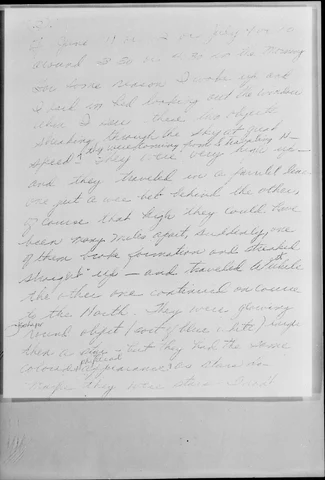 of June
around 3 30 or 4 30 in the morning
for some reason I woke up and
I was in bed looking out the window
when I seen these two objects
streaking through the sky at great
speed, they were coming from S traveling N-
they were very high up -
and they traveled in a parallel line
one just a wee bit behind the other,
of course that high they could have
been many miles apart, suddenly one
of them broke formation and streaked
straight up - and traveled W while
the other one continued on course
to the North. They were glowing
round object (sort of blue & white) larger
than a star - but they had the same
colored appearance as stars do.
they were stars